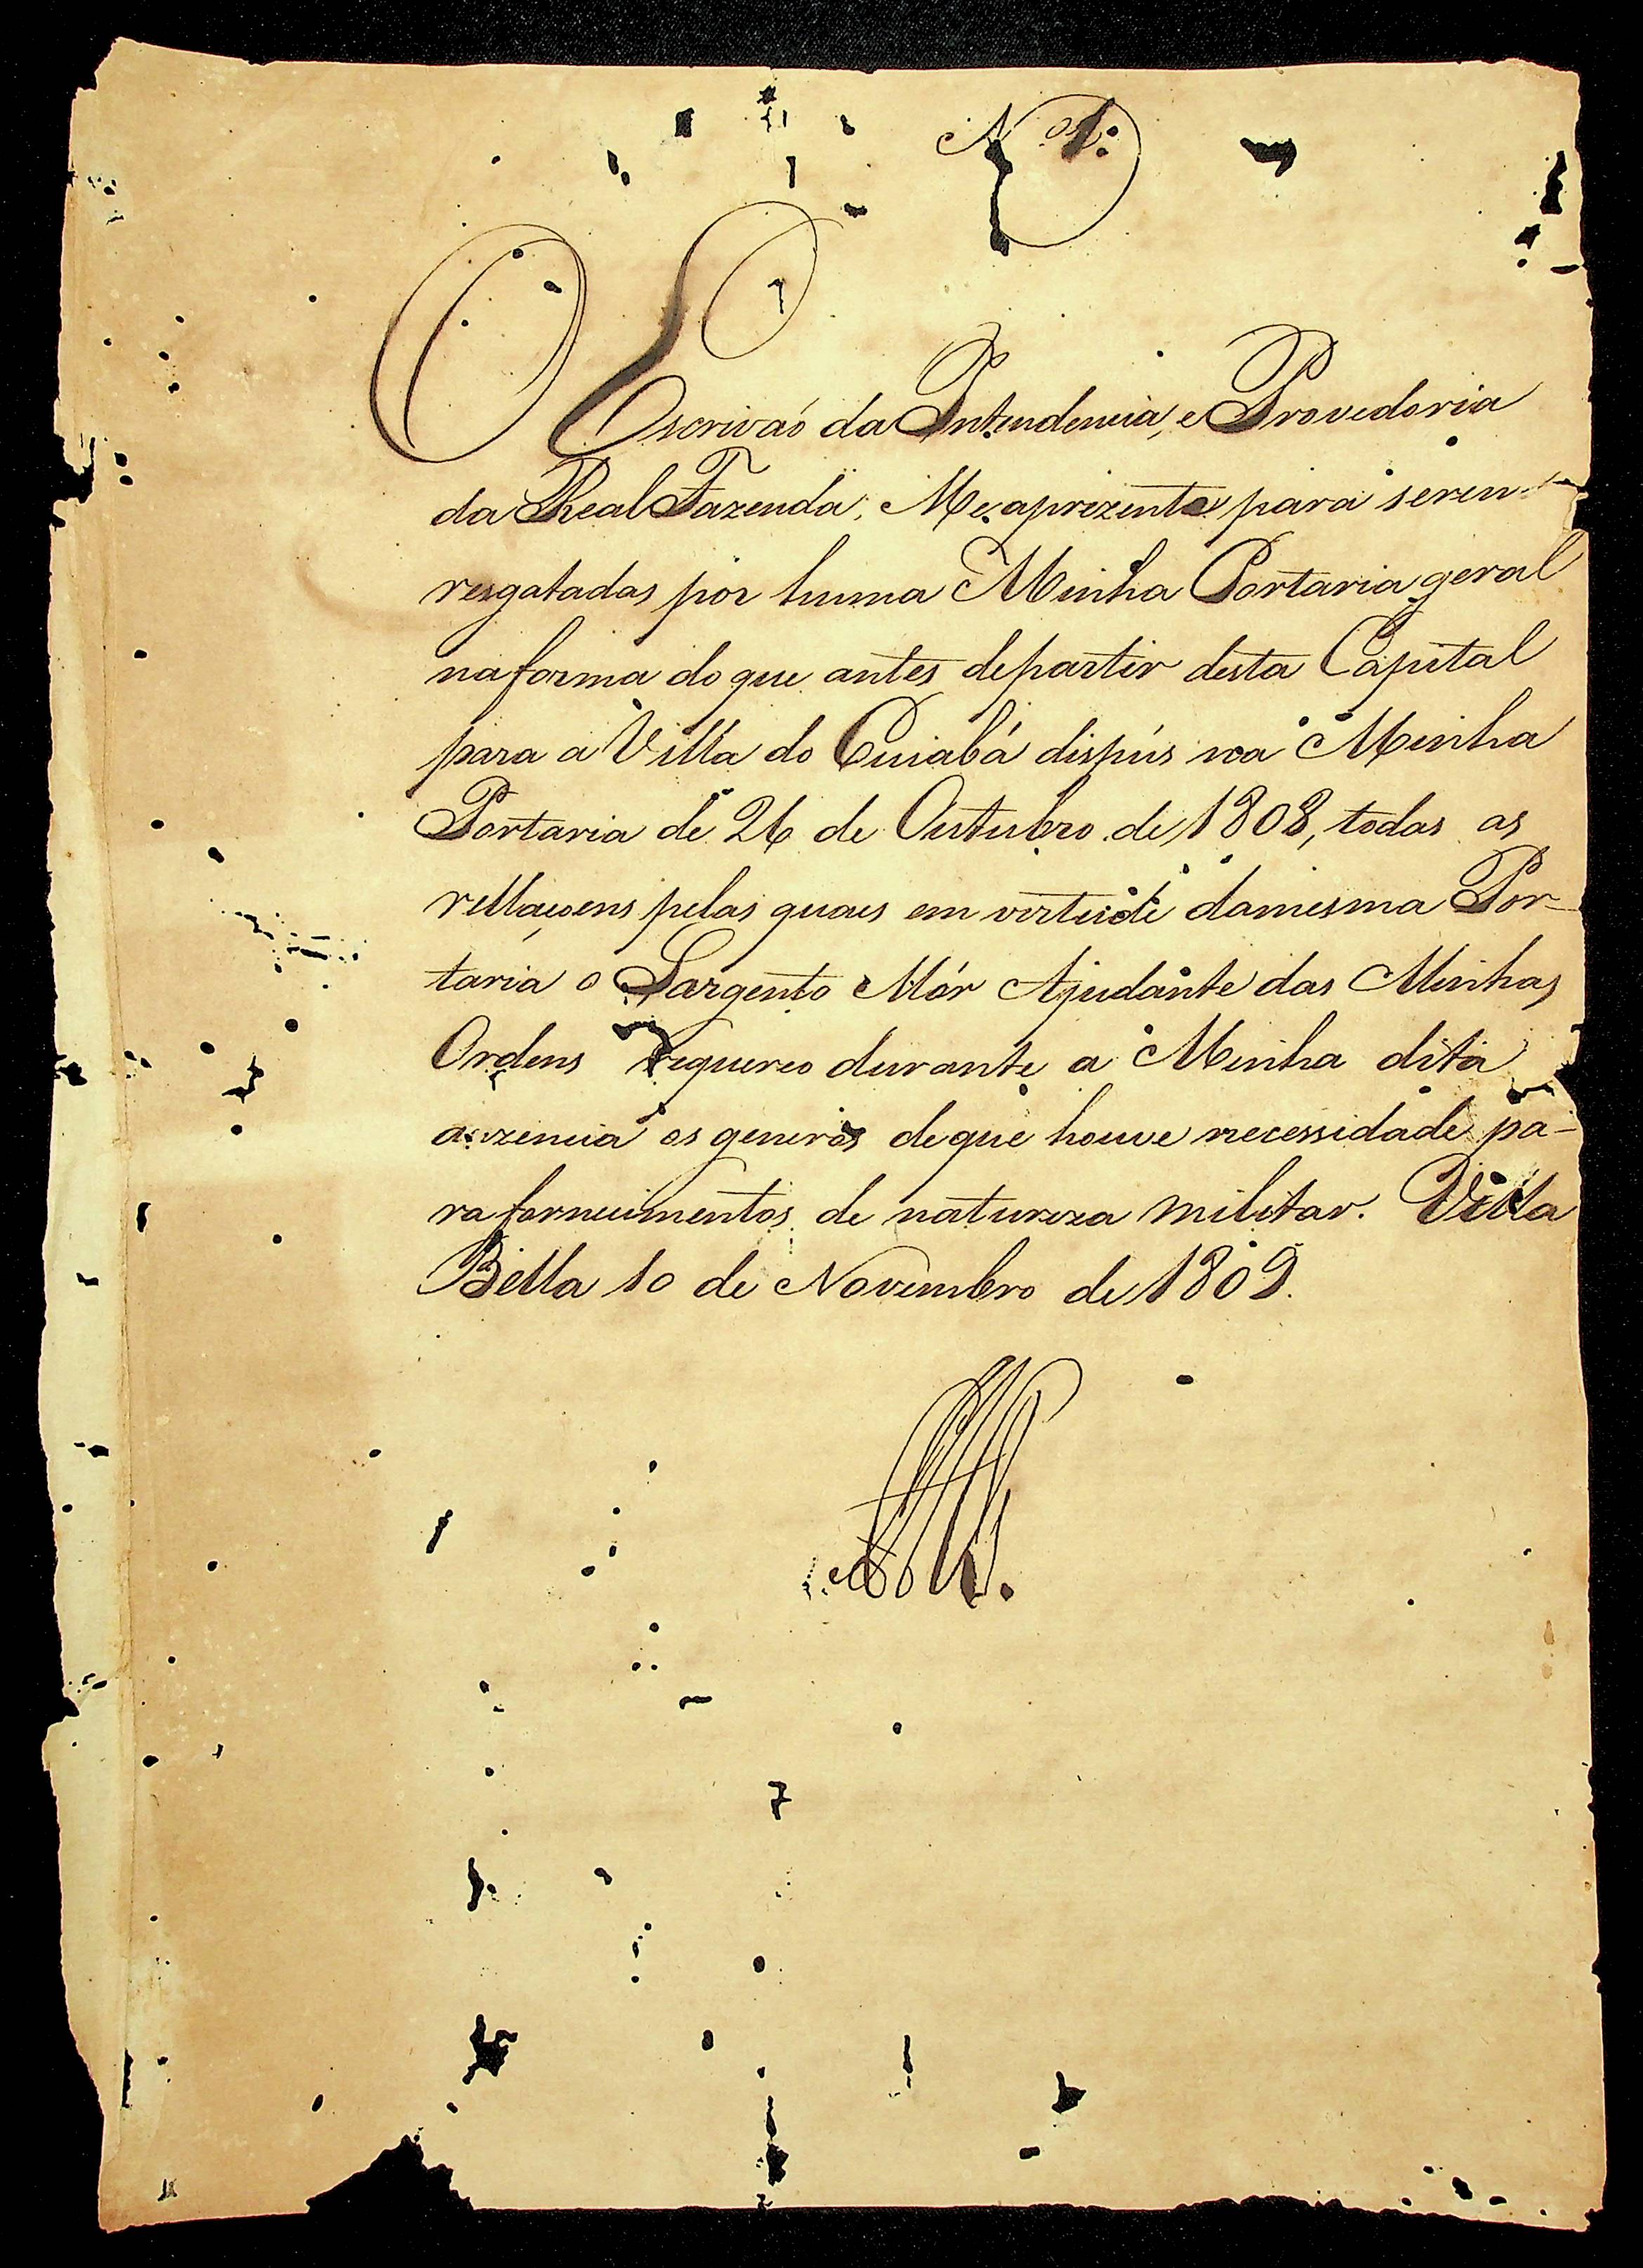 N.º 1.
O Escrivaõ da Intendencia, e Provedoria
da Real Fazenda, Me aprezente para serem
resgatadas por huma Minha Portaria geral
na forma do que antes de partir desta Capital
para a Villa do Cuiabá dispús na Minha
Portaria de 26 de Outubro de 1808, todas as
rellaçoens pelas quaes em virtude da mesma Por-
taria o Sargento Mór Ajudante das Minhas
Ordens requereo durante a Minha dita
auzencia os generos de que houve necessidade pa-
ra fornecimentos de natureza militar. Villa
Bella 10 de Novembro de 1809.